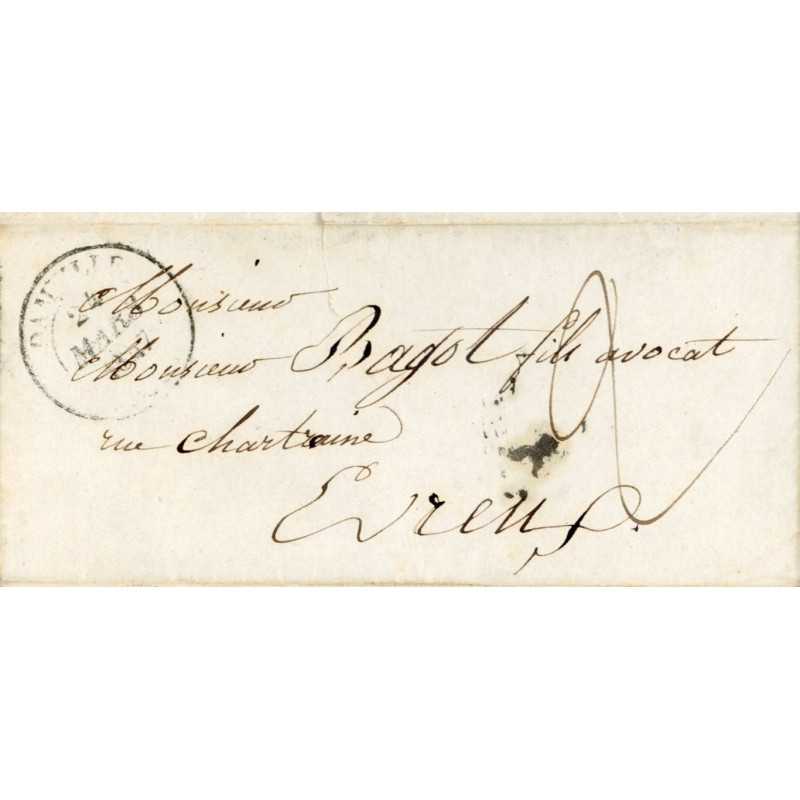 DAMVILLE
24
MARS
Monsieur
Monsieur Bagot fils avocat
rue chartraine
Evreux.